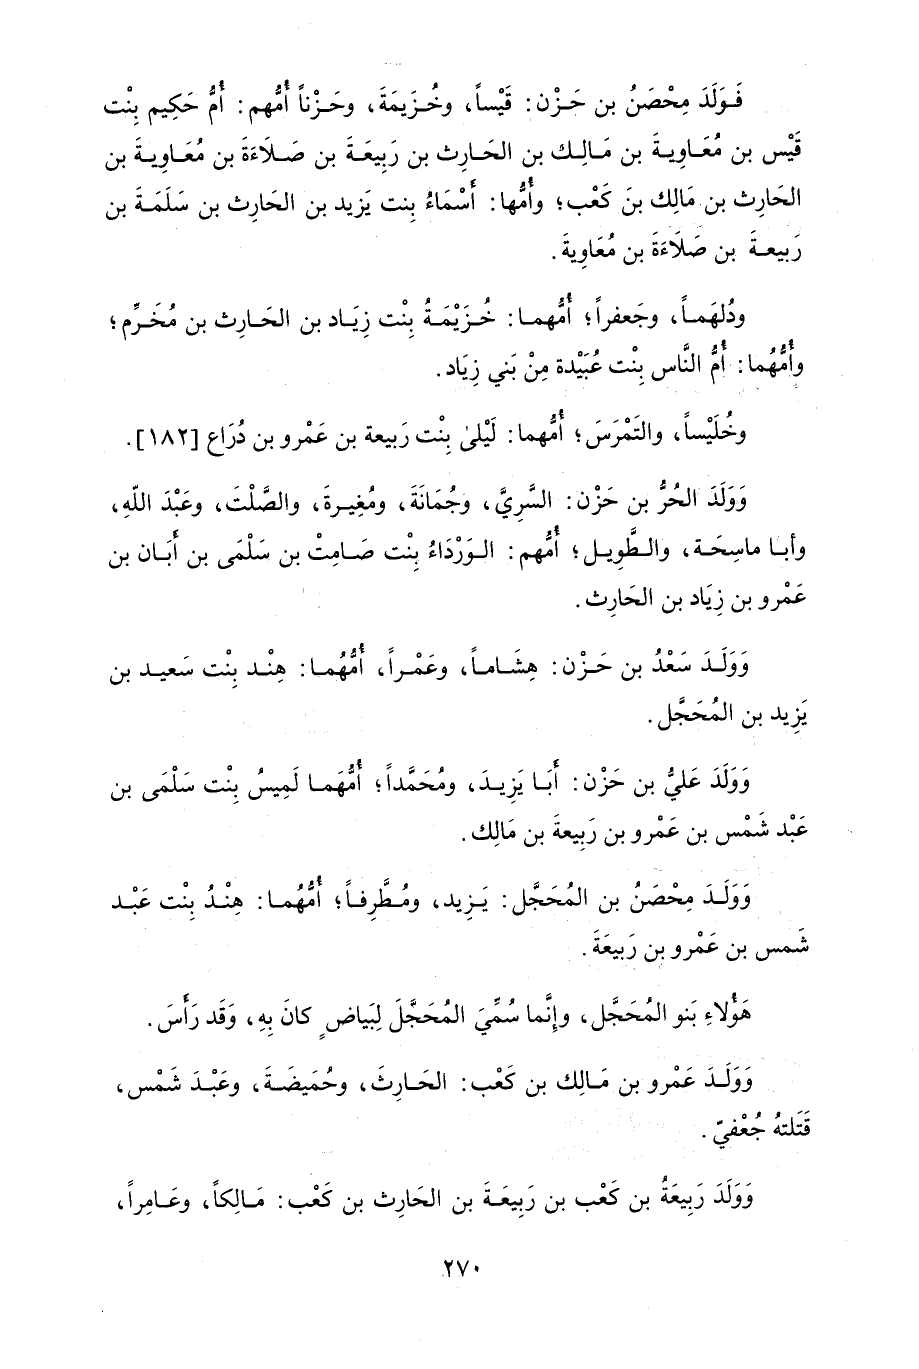 فَوَلَدَ مِحْصَنُ بن حَزْن: قَيْساً، وخُزَيمَةَ، وحَزْناً أُمُّهم: أُمُّ حَكِيم بِنْت
قَيْس بن مُعَاوِيةَ بن مَالِك بن الحَارِث بن رَبِيعَةَ بن صَلَاءَةَ بن مُعَاوِيةَ بن
الحَارِث بن مَالِك بن كَعْب؛ وأُمُّها: أَسْمَاءُ بِنت يَزيد بن الحَارِث بن سَلَمَةَ بن
رَبيعةَ بن صَلَاءَةَ بن مُعَاوِيةَ.
ودُلهَماً، وجَعفراً؛ أُمُّهما: خُزَيْمَةُ بِنْت زِيَاد بن الحَارِث بن مُخَرِّم؛
وأُمُّهُما: أُمُّ النَّاس بِنْت عُبَيْدة مِنْ بَني زِيَاد.
وحُلَيْساً، والتَمْرَسَ؛ أُمُّهما: لَيْلىٰ بِنْت رَبيعة بن عَمْرو بن دُرَاع [١٨٢].
وَوَلَدَ الحُرُّ بن حَزْن: السَّرِيَّ، وجُمَانَةَ، ومُغِيرةَ، والصَّلْتَ، وعَبْدَ اللّهِ،
وأبا ماسِحَة، والطَّويل؛ أُمُّهم: الوَرْدَاءُ بِنْت صَامِتْ بن سَلْمَى بن أَبَان بن
عَمْرو بن زِيَاد بن الحَارِث.
وَوَلَدَ سَعْدُ بن حَزْن: هِشَاماً، وعَمْراً، أُمُّهُما: هِنْد بِنْت سَعيد بن
يَزِيد بن المُحَجَّل.
وَوَلَدَ عَليُّ بن حَزْن: أَبَا يَزِيدَ، ومُحَمَّداً؛ أُمُّهَما لَمِيسُ بِنْت سَلْمَى بن
عَبْد شَمْس بن عَمْرو بن رَبِيعةَ بن مَالِك.
وَوَلَدَ مِحْصَنُ بن المُحَجَّل: يَزِيد، ومُطَّرِفاً؛ أُمُّهُما: هِنْدُ بِنْت عَبْد
شَمس بن عَمْرو بن رَبيعَةَ.
هَؤُلاءِ بَنو المُحَجَّل، وإِنَّما سُمِّيَ المُحَجَّلَ لِبَياضٍ كانَ بِهِ، وَقَد رَأَسَ.
وَوَلَدَ عَمْرو بن مَالِك بن كَعْب: الحَارِثَ، وحُمَيضَةَ، وعَبْدَ شَمْس،
قَتَلتهُ جُعْفيّ.
وَوَلَدَ رَبِيعَةُ بن كَعْب بن رَبِيعَةَ بن الحَارِث بن كَعْب: مَالِكاً، وعَامِراً،
٢٧٠